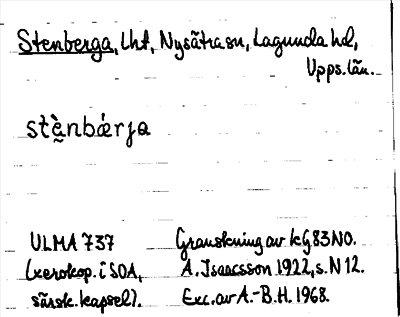 Stenberga, Lht, Nysätra sn, Lagunda hd,
Upps. län.
stè̱nbǽrja
ULMA 737 Granskning av kG. 83 NO.
(xerokop. i SOA, A. Isaacsson 1922, s. N 12.
särsk. kapsel). Exc. av A.-B. H. 1968.